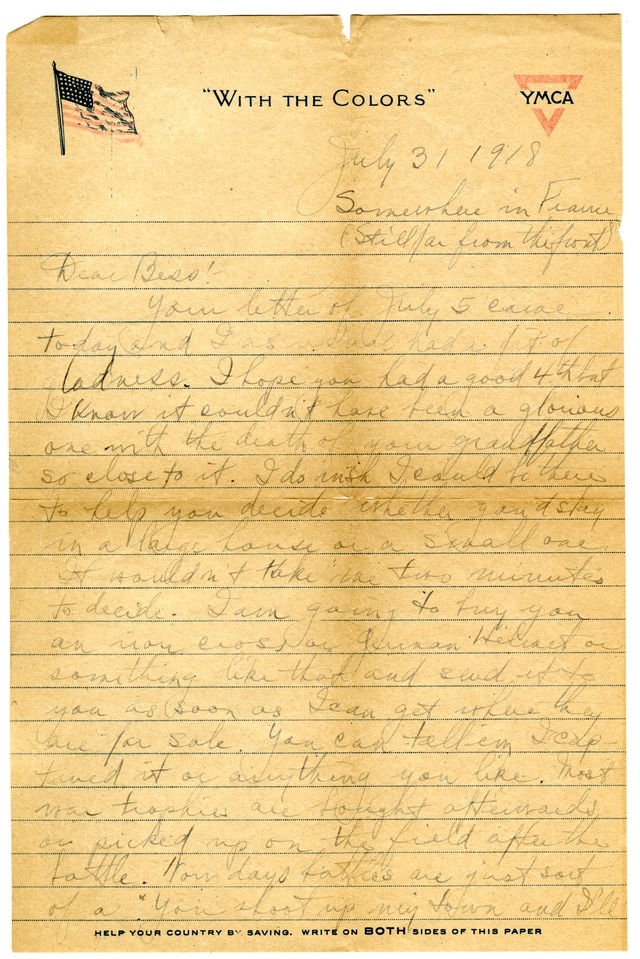 "WITH THE COLORS"
YMCA
July 31 1918
Somewhere in France
(Still far from the front)
Dear Bess:-
Your letter of July 5 came
today and I as usual had a fit of
gladness. I hope you had a good 4th but
I know it couldn't have been a glorious
one with the death of your grandfather
so close to it. I do wish I could be there
to help you decide whether you'd stay
in a large house or a small one.
It wouldn't take me two minutes
to decide. I am going to buy you
an iron cross or German Helmet or
something like that and send it to
you as soon as I can get where they
are for sale. You can tell em I cap-
tured it or anything you like. Most
war trophies are bought afterwards
or picked up on the field after the
battle. Now days battles are just sort
of a "You shoot up my town and I'll
HELP YOUR COUNTRY BY SAVING. WRITE ON BOTH SIDES OF THIS PAPER